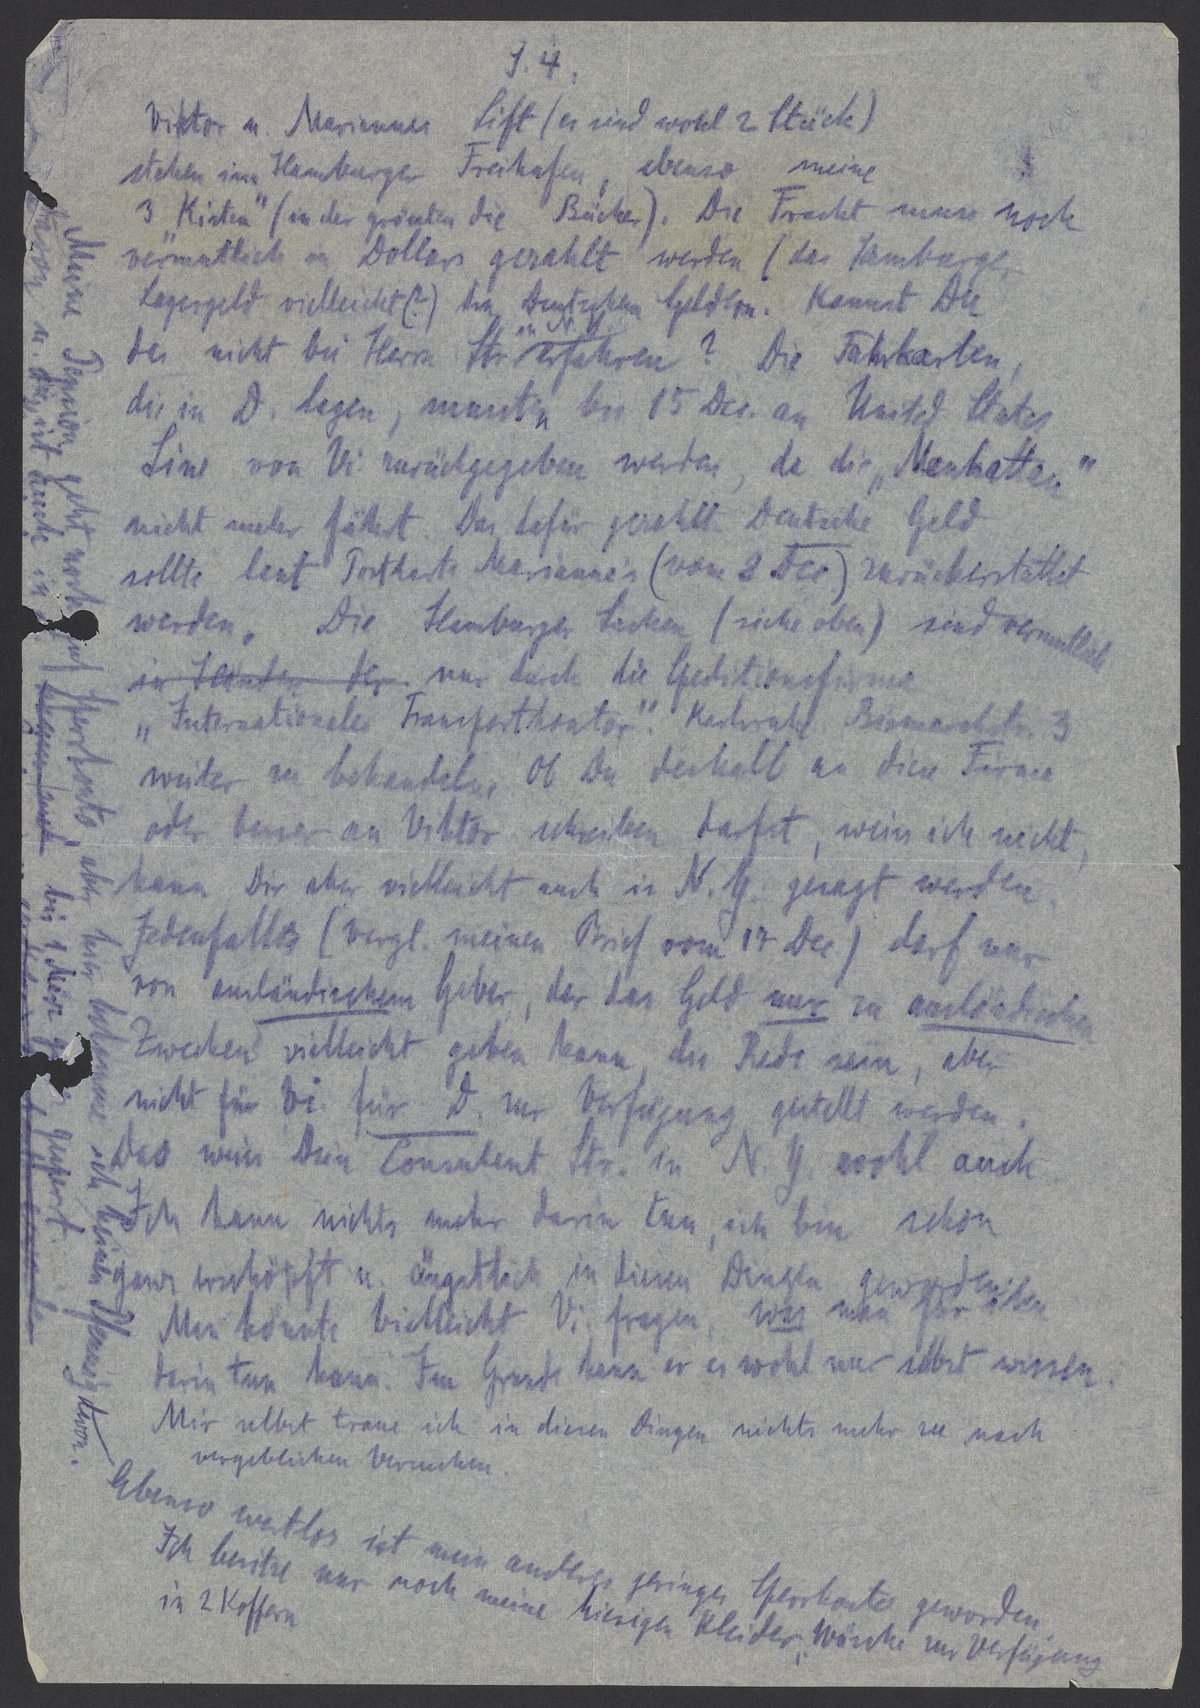 S. 4.
Viktor u. Mariannes Lift (es sind wohl 2 Stück)
stehen im Hamburger Freihafen, ebenso meine
3 Kisten" (in der grössten die Bücher). Die Fracht muss noch
vermutlich in Dollars gezahlt werden (das Hamburger
Lagergeld vielleicht (?) in Deutschem Geld). Kannst Du
das nicht bei Herrn Str. in N.Y. erfahren? Die Fahrkarten,
die in D. lagen, mussten bis 15 Dec. an United States
Line von Vi. zurückgegeben werden, da die „Manhattan"
nicht mehr fährt. Das dafür gezahlte Deutsche Geld
sollte laut Postkarte Marianne's (vom 2 Dec) zurückerstattet
werden. Die Hamburger Sachen (siehe oben) sind vermutlich
in Händen der nur durch die Speditionsfirma
„Internationales Transportkontor". Karlsruhe Bismarckstr. 3
weiter zu behandeln. Ob Du deshalb an diese Firma
oder besser an Viktor schreiben darfst, weiss ich nicht,
kann Dir aber vielleicht auch in N.Y. gesagt werden.
Jedenfalls (vergl. meinen Brief vom 17 Dec) darf nur
von ausländischem Geber, der das Geld nur zu ausländischen
Zwecken vielleicht geben kann, die Rede sein, aber
nicht für Vi. für D. zur Verfügung gestellt werden.
Das weiss Dein Consulent Str. in N.Y. wohl auch
Ich kann nichts mehr darin tun, ich bin schon
ganz erschöpft u. ängstlich in diesen Dingen geworden.
Man könnte vielleicht Vi. fragen, was man für ihn
darin tun kann. Im Grunde kann er es wohl nur selbst wissen.
Mir selbst traue ich in diesen Dingen nichts mehr zu nach
vergeblichen Versuchen.
Ebenso wertlos ist mein anderes geringes Sperrkonto geworden
Ich besitze nur noch meine hiesigen Kleider, Wäsche zur Verfügung
in 2 Koffern
Meine Pension geht noch auf Sperrkonto aber hier bekomme ich keinen Pfennig davon.
u. ist auch in bis 1 März gesperrt.